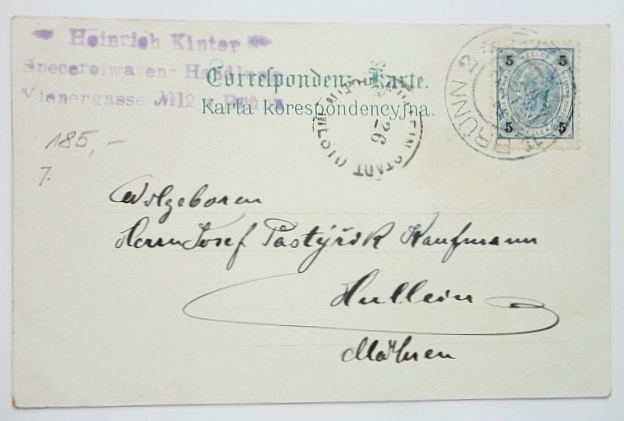 Heinrich Kinter
Specereiwaren-Handlung
Wienergasse №12 Brünn
Correspondenz-Karte.
Karta korespondencyjna.
5 5
5 5
BRÜNN 2
HULLEIN STADT
26
185,-
7.
Wolgeboren
Herrn Josef Pastýřik Kaufmann
Hullein
Mähren